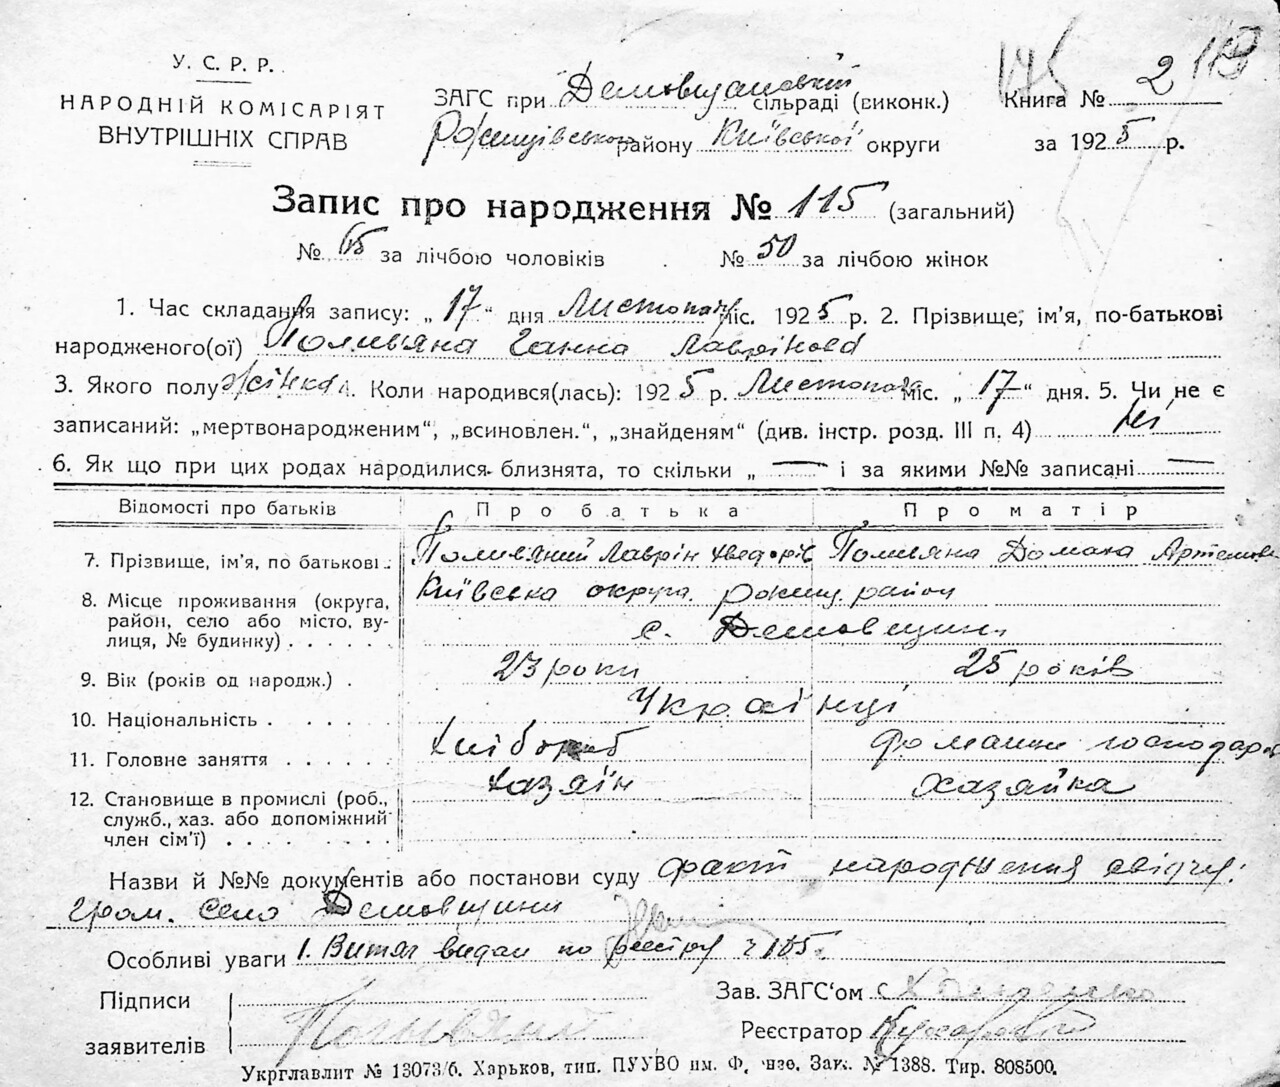 У. С. Р. Р.
НАРОДНІЙ КОМІСАРІЯТ
ВНУТРІШНІХ СПРАВ
ЗАГС при Демовщанській сільраді (виконк.)
району Київської округи
175 119
Книга № 2
за 1925 р.
Запис про народження № 115 (загальний)
№ 65 за лічбою чоловіків № 50 за лічбою жінок
1. Час складання запису: „ 17 “ дня Листопад міс. 1925 р. 2. Прізвище, ім'я, по-батькові
народженого(ої) Поливяна Ганна Лаврінова
3. Якого полу жінка 4. Коли народився(лась): 1925 р. Листопада міс. „ 17 “ дня. 5. Чи не є
записаний: „мертвонародженим“, „всиновлен.“, „знайденям“ (див. інстр. розд. III п. 4) ні
6. Як що при цих родах народилися близнята, то скільки „ — і за якими №№ записані —
Відомості про батьків Про батька Про матір
7. Прізвище, ім'я, по батькові Поливяний Лаврін Хведорів Поливяна Домаха Артемова
8. Місце проживання (округа, район, село або місто, вулиця, № будинку) Київська округа район
с. Демовщини
9. Вік (років од народж.) 23 роки 25 років
10. Національність Українці
11. Головне заняття Хлібороб домашнє господар
12. Становище в промислі (роб., служб., хаз. або допоміжний член сім'ї) Хазяїн Хазяйка
Назви й №№ документів або постанови суду факт народження свідчу:
гром. село Демовщини
Особливі уваги 1. Витяг видан по реєстру ч 105.
Підписи
заявителів Поливяний
Зав. ЗАГС‘ом
Реєстратор
Укрглавлит № 13073/6. Харьков, тип. ПУУВО им. Зак. № 1388. Тир. 808500.